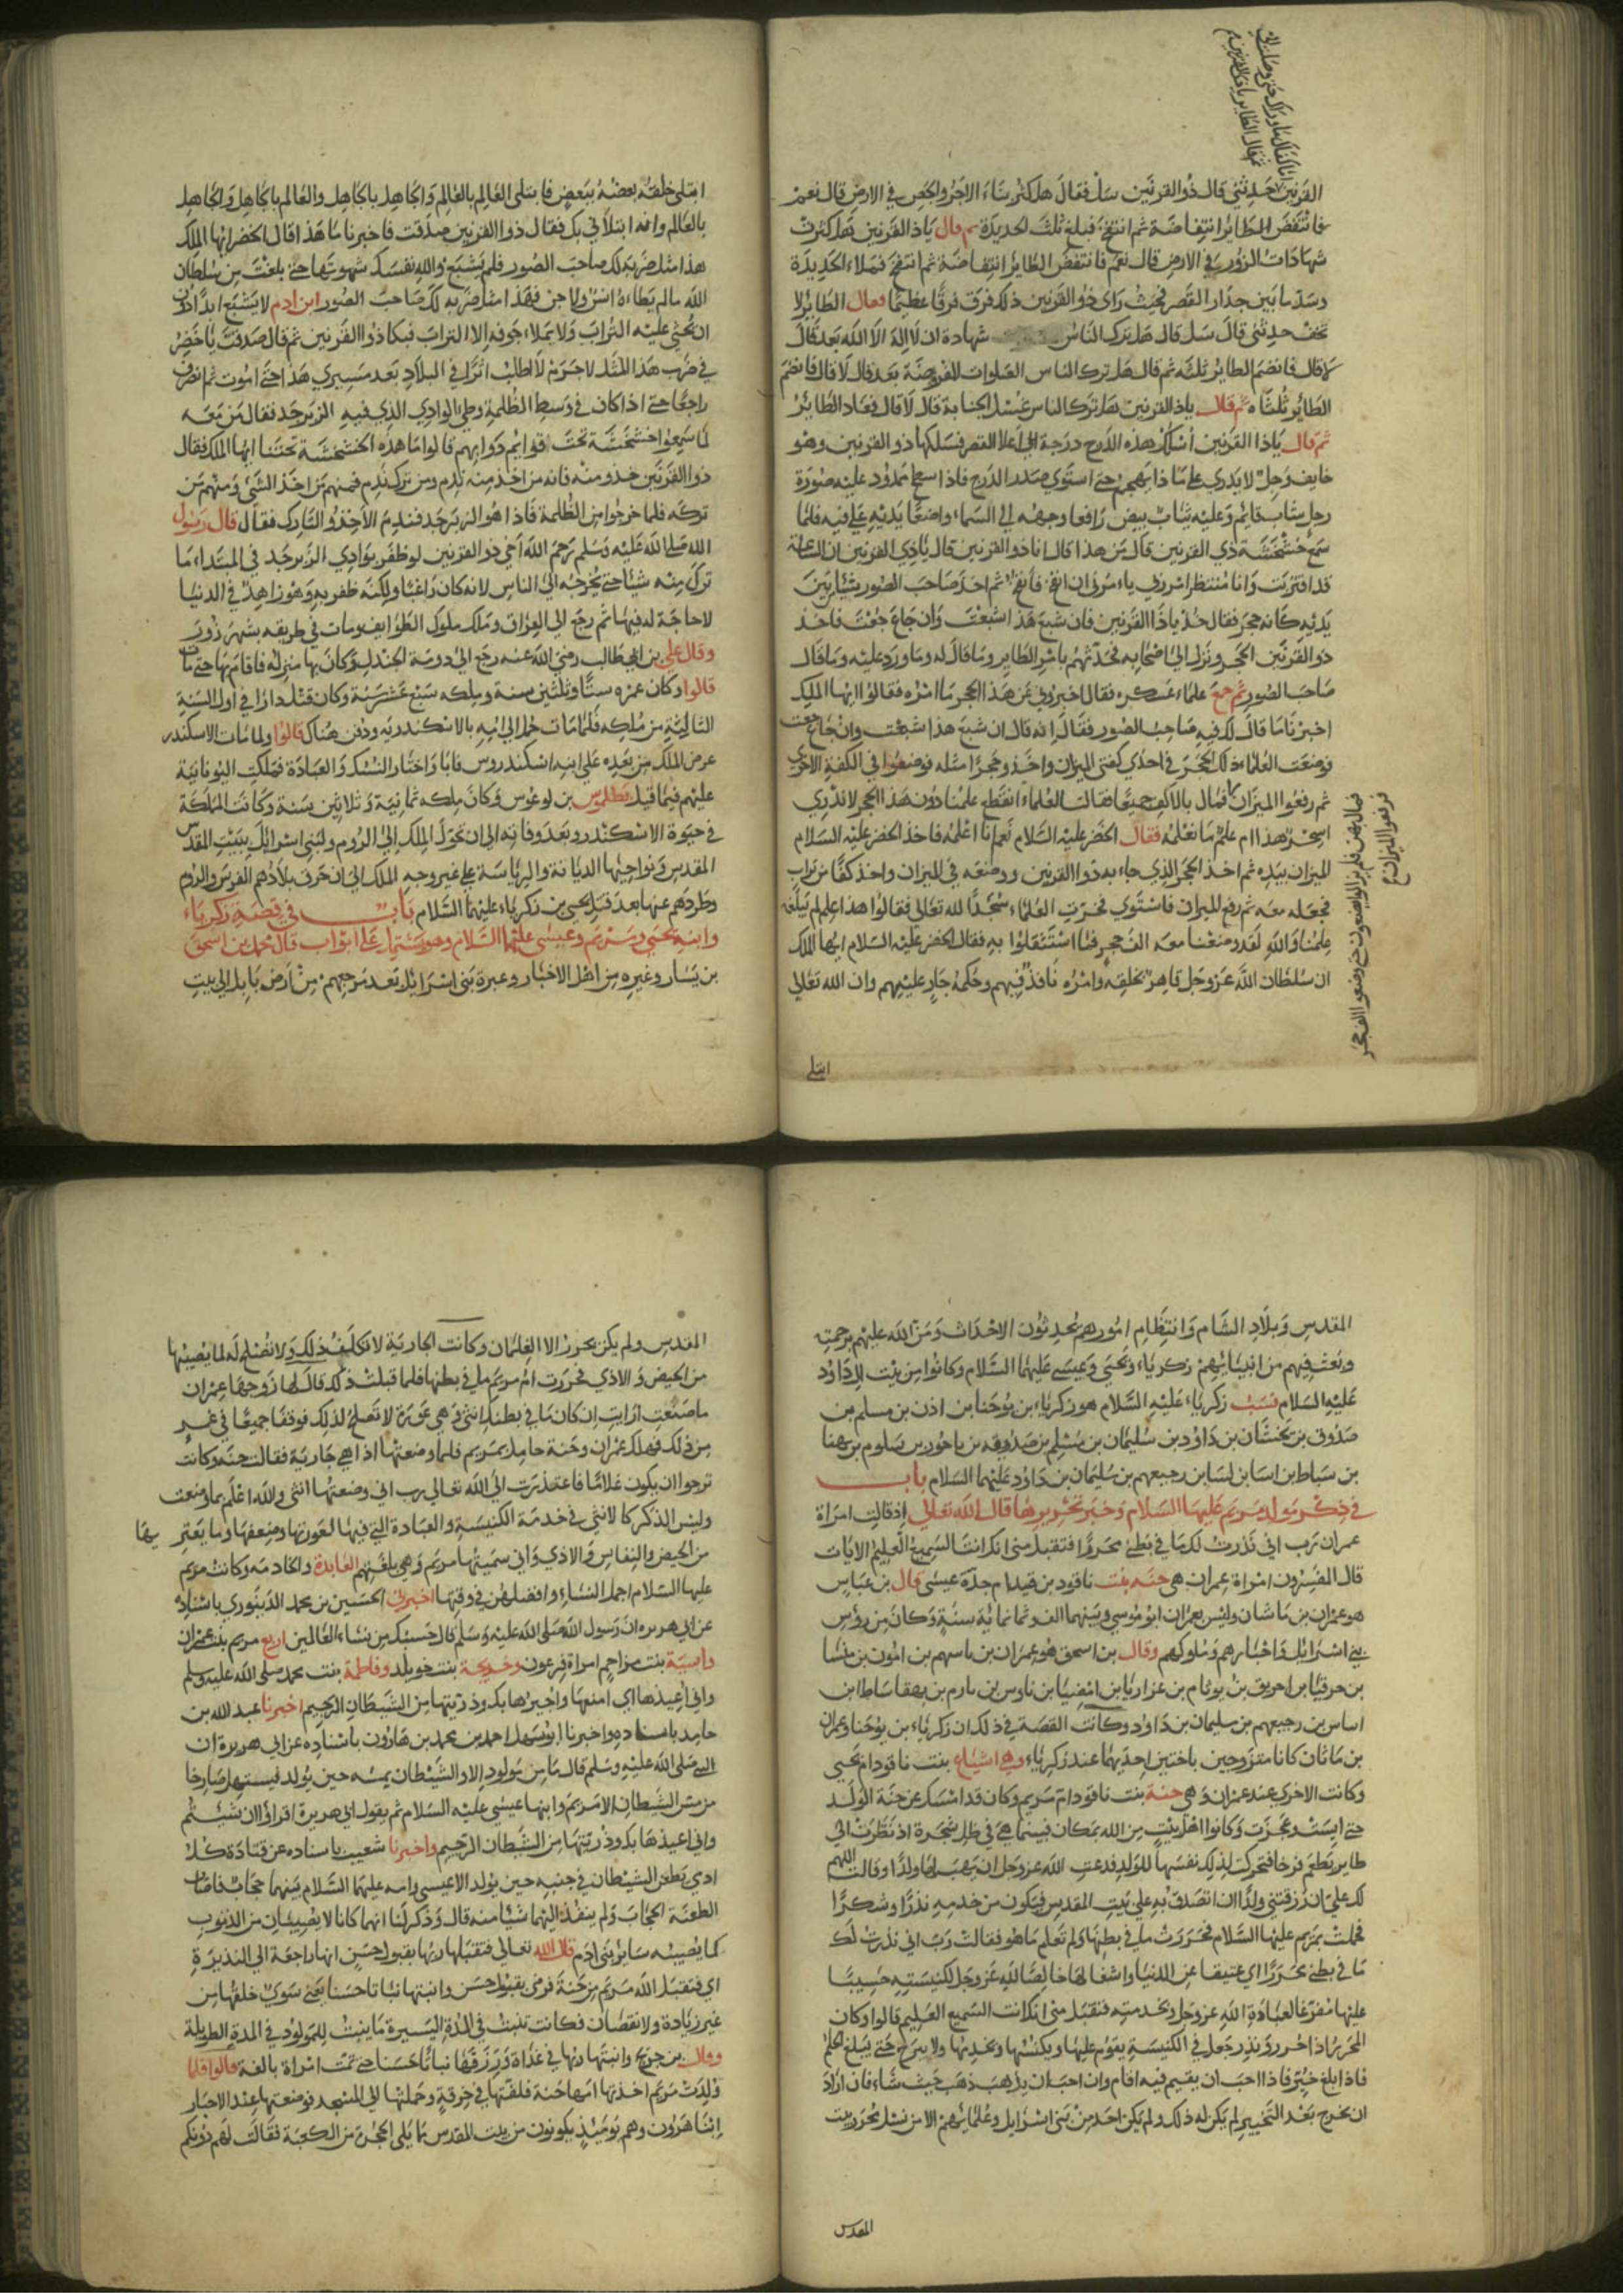 انا كفاك ما وراك حتى وصلت الي
ثم قال الطاير ياذا القرنين
القرنين حدثني قال ذو القرنين سل فقال هل كثر بناء الاجر والجص في الارض قال نعم
فانتفض الطاير انتفاضة ثم انتفخ فبلغ ثلث الحديدة ثم قال ياذا القرنين هل كثرت
شهادات الزور في الارض قال نعم فانتفض الطاير انتفاضة ثم انتفخ فملاء الحديدة
وسد ما بين جدار القصر فحيث راى ذو القرنين ذلك فرق فرقا عظيما فقال الطاير لا
تخف حدثني قال سل قال هل ترك الناس شهادة ان لا اله الا الله بعد قال
لا قال فانضم الطاير ثلثه ثم قال هل ترك الناس الصلوات المفروضة بعد قال لا قال فانضم
الطاير ثلثاه ثم قال ياذا القرنين هل ترك الناس غسل الجنابة قال لا قال فعاد الطاير
ثم قال ياذا القرنين اسلك هذه الدرج درجة الى اعلا القصر فسلكها ذو القرنين وهو
خايف وجل لا يدري على ماذا يهجم حتى استوى صدر الدرج فاذا سطح ممدود عليه صورة
رجل شاب قايم وعليه ثياب بيض رافعا وجهه الى السماء واضعا يديه على فيه فلما
سمع خشخشة ذي القرنين قال من هذا قال انا ذو القرنين قال ياذي القرنين ان الساعة
قد اقتربت وانا منتظر امر ربي ياءمرني ان انفخ فانفخ ثم اخذ صاحب الصور شيئا بين
يديه كانه حجر فقال خذ ياذا القرنين فان شبع هذا شبعت وان جاع جعت فاخذ
ذو القرنين الحجر ونزل الى اصحابه فحدثهم بامر الطاير وما قال له وما ورد عليه وما قال
صاحب الصور ثم جمع علماء عسكره فقال اخبروني عن هذا الحجر ما امره فقالوا ايها الملك
اخبرنا ما قال لك فيه صاحب الصور فقال انه قال ان شبع هذا شبعت وان جاع جعت
فوضعت العلماء ذلك الحجر في احدى كفتي الميزان واخذوا حجرا مثله فوضعوا في الكفة الاخرى
ثم رفعوا الميزان فمال بالاكف جميعا فقالت العلماء انقطع علمنا دون هذا الحجر لا ندري
اسحر هذا ام علم ما نعلمه فقال الخضر عليه السلام نعم انا اعلمه فاخذ الخضر عليه السلام
الميزان بيده ثم اخذ الحجر الذي جاء به ذوا القرنين ووضعه في الميزان واخذ كفا من تراب
فجعله معه ثم رفع الميزان فاستوى فخرت العلماء سجدا لله تعالى فقالوا هذا علم لم تبلغه
علمنا والله لقد وضعنا معه الف حجر فما استثقلوا به فقال الخضر عليه السلام ايها الملك
ان سلطان الله عز وجل قاهر بخلقه وامره نافذ فيهم وحكمه جار عليهم وان الله تعالى
فمال بهن فلم يزالوا يضعون حتى وضعوا الف حجر
ثم رفعوا الميزان
ابتلى
ابتلى خلقه بعضه ببعض فابتلى العالم بالعالم والجاهل بالجاهل والعالم بالجاهل والجاهل
بالعالم وانه ابتلاني بك فقال ذوا القرنين صدقت فاخبرنا ما هذا قال الخضر ايها الملك
هذا مثل ضربه لك صاحب الصور فلم يشبع والله نفسك شهوتها حتى بلغت من سلطان
الله مالم يطاءه انس ولا جن فهذا مثل ضربه لك صاحب الصور ابن ادم لا يشبع ابدا دون
ان يحثى عليه التراب ولا يملاء جوفه الا التراب فبكا ذوا القرنين ثم قال صدقت يا خضر
في ضرب هذا المثل لا جرم لا اطلب اثرا في البلاد بعد مسيري هذا حتى اموت ثم انصرف
راجعا حتى اذا كان في وسط الظلمة وطي الوادي الذي فيه الزبرجد فقال من معه
لما سمعوا خشخشة تحت اقوايم دوابهم قالوا ما هذه الخشخشة تحتنا ايها الملك فقال
ذوا القرنين خذو منه فانه من اخذ منه ندم ومن ترك ندم فمنهم من اخذ الشئ ومنهم من
تركه فلما خرجوا من الظلمة فاذا هو الزبرجد فندم الاخذ والتارك فقال قال رسول
الله صلى الله عليه وسلم رحم الله اخي ذو القرنين لو ظفر بوادي الزبرجد في المبتداء ما
ترك منه شيئا حتى يخرجه الى الناس لانه كان راغبا ولكنه ظفر به وهو زاهد في الدنيا
لا حاجة له فيها ثم رجع الى العراق وملك ملوك الطوايف ومات في طريقه بشهر زور
وقال علي بن ابي طالب رضي الله عنه رجع الى دومة الجندل وكان بها منزله فاقام بها حتى مات
قالوا وكان عمره ستا وثلثين سنة وملكه سبع عشر سنة وكان قتل دارا في اول السنة
الثالثة من ملكه فلما مات حمل الى امه بالاسكندرية ودفن هناك قالوا ولما مات الاسكندر
عرض الملك من بعده على ابنه اسكندروس فابا واختار النسك والعبادة فملكت اليونانية
عليهم فيما قيل بطلموس بن لوغوس وكان ملكه ثمانية وثلاثين سنة وكانت المملكة
في حيوة الاسكندر وبعد وفاته الى ان تحول الملك الى الروم ولبني اسرايل ببيت المقدس
المقدس ونواحيها الديانة والرياسة على غير وجه الملك الى ان خرق بلادهم الفرس والروم
وطردهم عنها بعد قتل يحيى بن زكرياء عليهما السلام باب في قصة زكرياء
وابنه يحيى ومريم وعيسى عليهما السلام وهو يشتمل على ابواب قال محمد بن اسحق
بن يسار وغيره من اهل الاخبار وعبرة بني اسرائل بعد مرجعهم من ارض بابل الى بيت
المقدس وبلاد الشام وانتظام امورهم يحدثون الاحداث ومن الله عليهم برحمته
وبعث فيهم من انبيايهم زكرياء ويحيى وعيسى عليهما السلام وكانوا من بيت ال داود
عليه السلام نسب زكرياء عليه السلام هو زكرياء بن يوحنا بن اذن بن مسلم بن
صدوق بن نخشان بن داود بن سليمان بن مسلم بن صدوقه بن باحور بن سلوم بن بهنا
بن سباط بن اسا بن لسا بن رجيعهم بن سليمان بن داود عليهما السلام باب
في ذكر مولد مريم عليها السلام وخبر تحريرها قال الله تعالى اذ قالت امراة
عمران رب اني نذرت لك ما في بطني محررا فتقبل مني انك انت السميع العليم الايات
قال المفسرون امراة عمران هي حنه بنت ناقود بن قيدام جدة عيسى قال بن عباس
هو عمران بن ماثان وليس بعمران ابو موسى وبينهما الف وثمانمائة سنة وكان من رؤس
بني اسرائل واحبارهم وملوكهم وقال بن اسحق هو عمران بن ياسهم بن امون بن منشا
بن حزقيا بن احريق بن يوثام بن عزاريا بن امضيا بن ناوس بن يارم بن بهفاساط ابن
اساس بن رجيعهم بن سليمان بن داود وكانت القصة في ذلك ان زكرياء بن يوحنا وعمران
بن ماثان كانا متزوجين باختين احديهما عند زكرياء وهي اشياع بنت ناقود ام يحيى
وكانت الاخرى عند عمران وهي حنة بنت ناقود ام مريم وكان قد امسك عن حنة الولد
حتى ايست وعجزت وكانوا اهل بيت من الله بمكان فبينما هي في ظل شجرة اذ نظرت الى
طاير يطعم فرخا فتحركت لذلك نفسها للولد فدعت الله عز وجل ان يهب لها ولدا وقالت اللهم
لك علي ان رزقتني ولدا ان اتصدق به على بيت المقدس فيكون من خدمه نذرا وشكرا
فحملت بمريم عليها السلام فحررت ما في بطنها ولم تعلم ما هو فقالت رب اني نذرت لك
ما في بطني محررا اي عتيقا عن الدنيا واشغالها خالصا لله عز وجل لكنيسته حبيسا
عليها مفرغا لعبادة الله عز وجل وبخدمته فتقبل مني انك انت السميع العليم قالوا وكان
المحرر اذا حرر ونذر جعل في الكنيسة يقوم عليها ويكنسها ويخدمها ولا يبرح حتى يبلغ الحلم
فاذا بلغ خير فاذا احب ان يقيم فيه اقام وان احب ان يذهب ذهب حيث شاء فان اراد
ان يخرج بعد التخيير لم يكن له ذلك ولم يكن احد من بني اسرايل وعلمايهم الا من نسل يحرر ببيت
المقدس
المقدس ولم يكن يحرر الا الغلمان وكانت الجارية لا تكلف ذلك ولا تصلح له لما يصيبها
من الحيض والاذي فحررت ام مريم ما في بطنها فلما قبلت ذلك قال لها زوجها عمران
ما صنعت ارايت ان كان ما في بطنك انثى وهي عورة لا تصلح لذلك فوقعا جميعا في غم
من ذلك فهلك عمران وحنة حامل بمريم فلما وضعتها اذا هي جارية فقالت حنه وكانت
ترجوا ان يكون غلاما فاعتذرت الى الله تعالى رب اني وضعتها انثى والله اعلم بما وضعت
وليس الذكر كالانثى في خدمة الكنيسة والعبادة التي فيها لعورتها وضعفها وما يعتريها
من الحيض والنفاس والاذي واني سميتها مريم وهي بلغتهم العابدة والخادمه وكانت مريم
عليها السلام اجمل النساء وافضلهن في وقتها اخبرني الحسين بن محمد الدينوري باسناده
عن ابي هريره ان رسول الله صلى الله عليه وسلم قال حسبك من نساء العالمين اربع مريم بنت عمران
واسية بنت مزاحم امراة فرعون وخديجة بنت خويلد وفاطمة بنت محمد صلى الله عليه وسلم
واني اعيذها اي امنعها واجيرها بك وذريتها من الشيطان الرجيم اخبرنا عبد الله بن
حامد باسناده واخبرنا ابو سهل احمد بن محمد بن هارون باسناده عن ابي هريرة ان
النبي صلى الله عليه وسلم قال ما من مولود الا والشيطان يمسه حين يولد فيستهل صارخا
من مس الشيطان الا مريم وابنها عيسى عليه السلام ثم يقول ابي هريرة اقراؤا ان شيتم
واني اعيذها بك وذريتها من الشيطان الرجيم واخبرنا شعيب باسناده عن قتادة كل
ادمي يطعن الشيطان في جنبه حين يولد الا عيسى وامه عليهما السلام بينهما حجاب فاصاب
الطعنة الحجاب ولم ينفذ اليهما شيئا منه قال وذكر لنا انهما كانا لا يصيبان من الذنوب
كما يصيبه ساير بني ادم قال الله تعالى فتقبلها ربها بقبول حسن انها راجعة الى النذيرة
اي فتقبل الله مريم من حنة فرضي بقبول حسن وانبتها نباتا حسنا يعني سوى خلقها من
غير زيادة ولا نقصان فكانت تنبت في المدة اليسيرة ما ينبت للمولود في المدة الطويلة
وقال بن جريج وانبتها ربها في غذاة ورزقها نباتا حسنا حتى تمت امراة بالغة قالوا فلما
ولدت مريم اخذتها امها حنة فلفتها في خرقة وحملتها الى المسجد فوضعتها عند الاحبار
ابنا هرون وهم يومئذ يكونون من بيت المقدس ما يلي الحجرة من الكعبة فقالت لهم دونكم